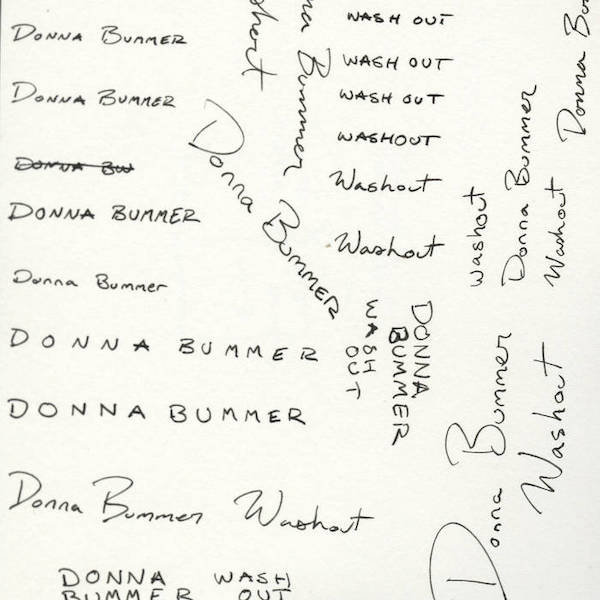 DONNA BUMMER
DONNA BUMMER
DONNA BW
DONNA BUMMER
Donna Bummer
DONNA BUMMER
DONNA BUMMER
Donna Bummer Washout
DONNA WASH
BUMMER OUT
Donna BUMMER
Bummer
WASH OUT
WASH OUT
WASH OUT
WASHOUT
Washout
Washout
DONNA
BUMMER
WASH
OUT
washout
Donna Bummer
Washout
Donna
Donna Bummer
Washout